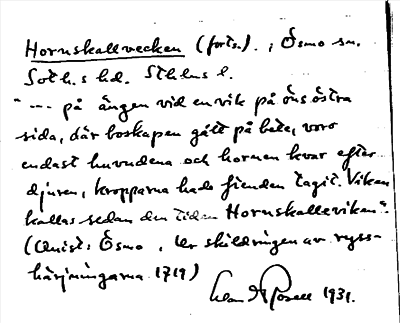 Hornskallvecken (forts.)., Ösmo sn.
Soth.s hd. Sthlms l.
"--- på ängen vid en vik på öns östra
sida, där boskapen gått på bete, voro
endast huvudena och hornen kvar efter
djuren, kropparna hade fienden tagit. Viken
kallas sedan den tiden Hornskalleviken".
(Quist: Ösmo, ur skildringen av ryss-
härjningarna 1719)
1931.